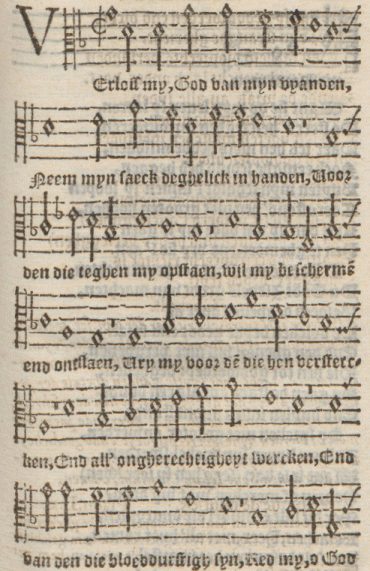 V
Erloſſ my, God van myn vyanden,
Neem myn ſaeck deghelick in handen, Voor
den die teghen my opſtaen, wil my beſchermē
end ontſlaen, Vry my voor dē die hen verſterc-
ken, End all' ongherechtigheyt wercken, End
van den die bloeddurſtigh ſyn, Red my, o God